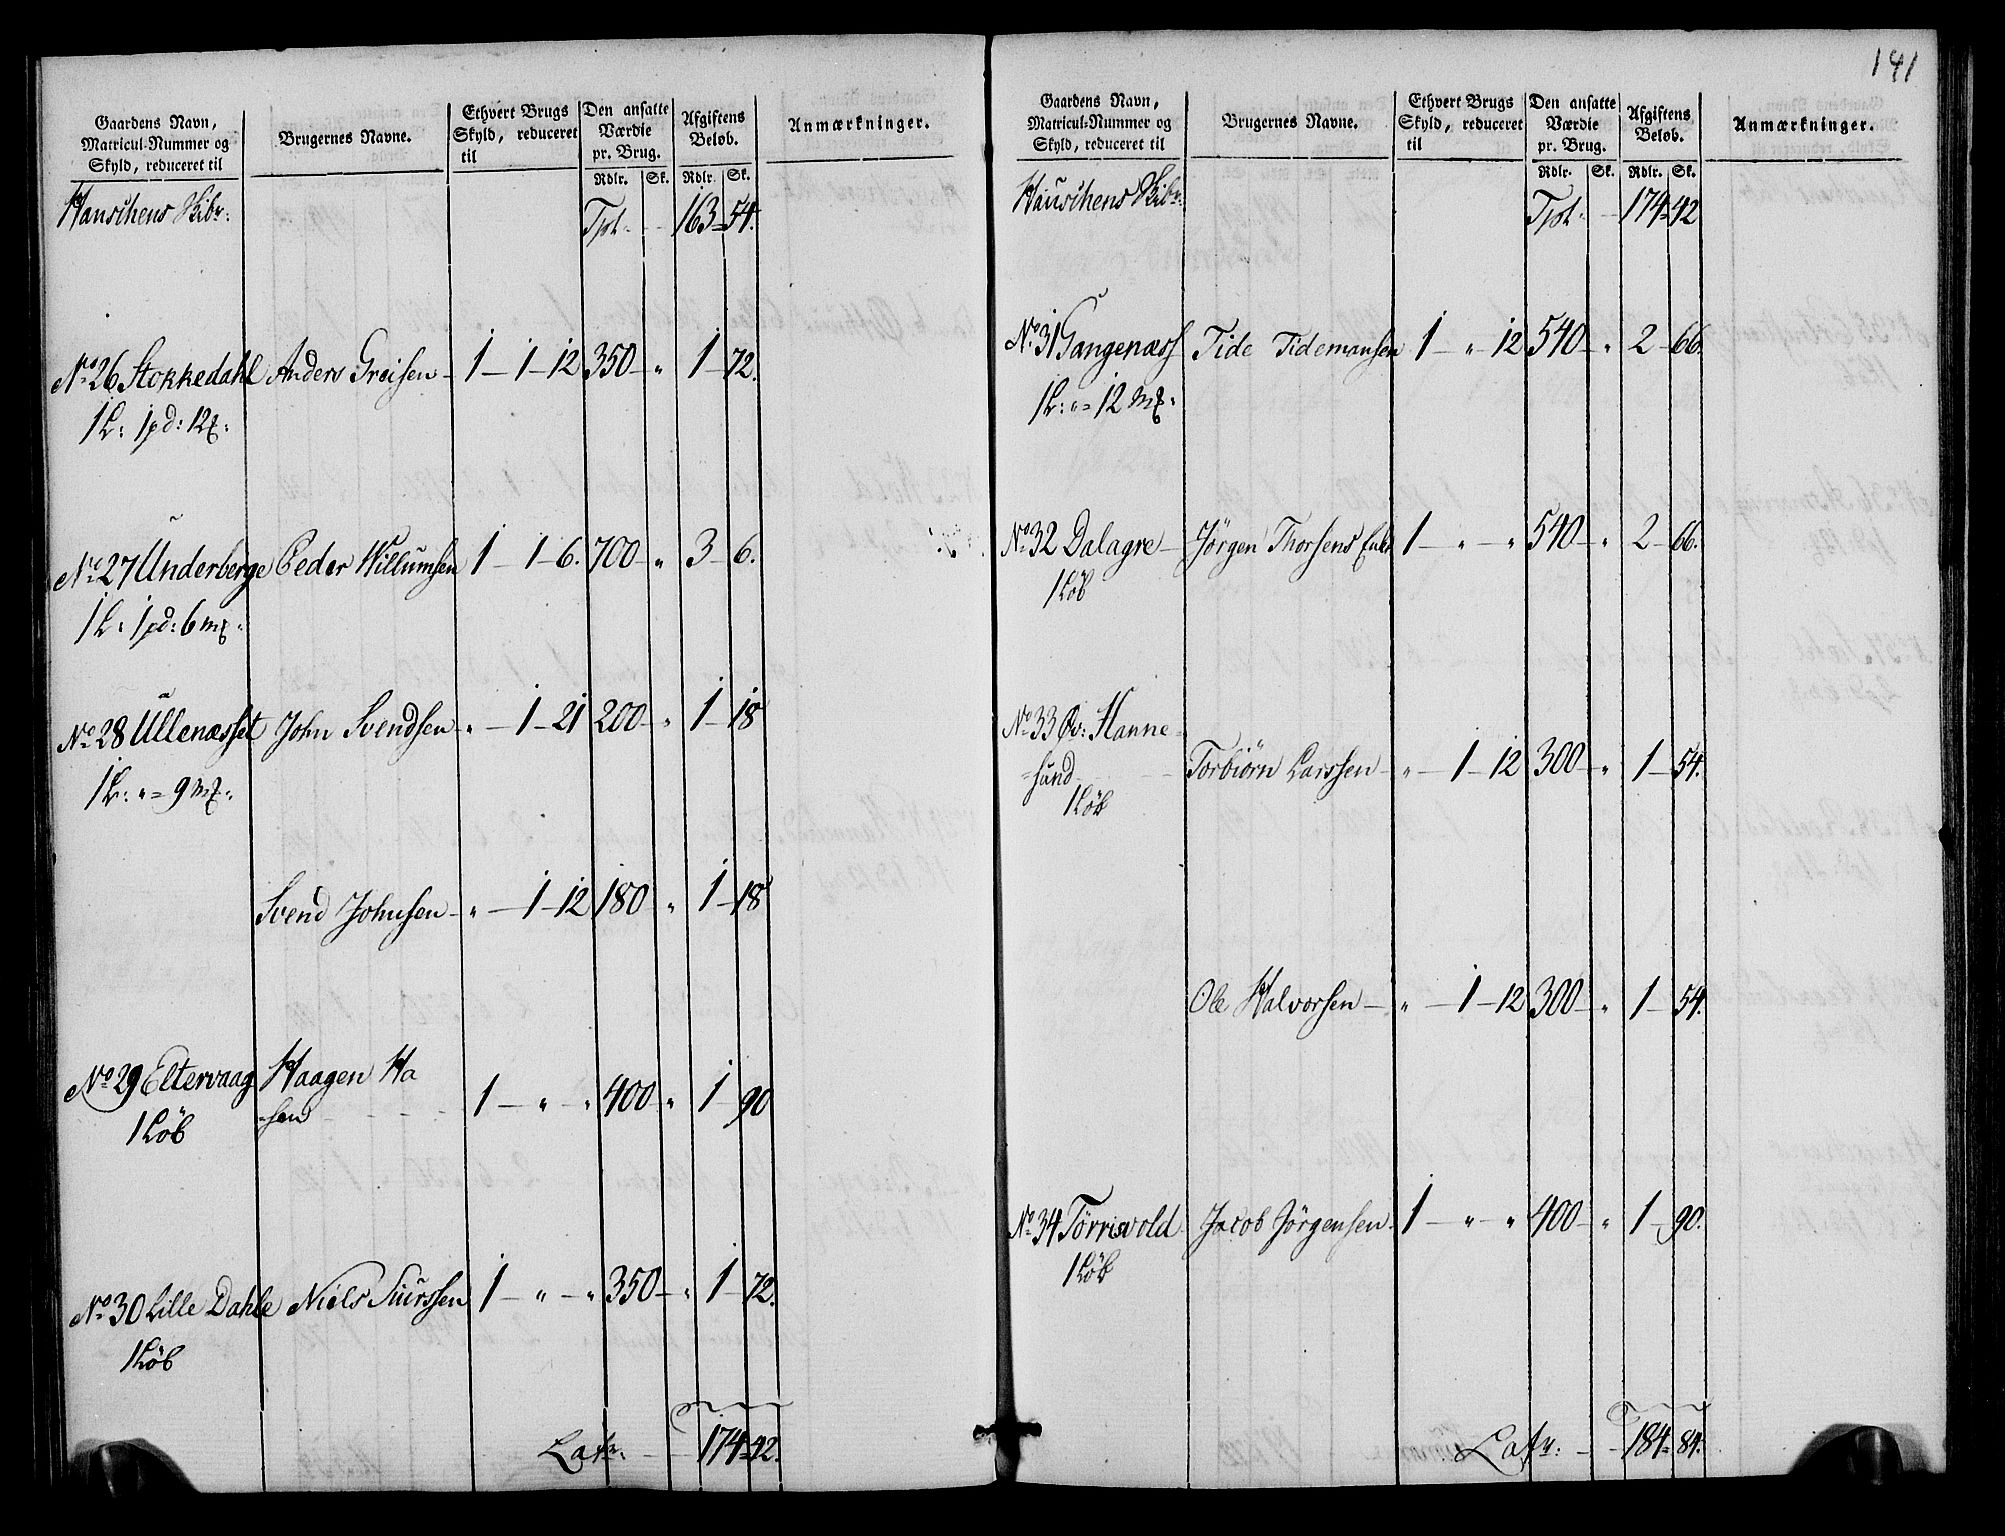 Gaardens Navn, Matricul-Nummer og Skyld, reduceret til | Brugernes Navne. | Ethvert Brugs Skyld, reduceret til | Den ansatte Værdie pr. Brug. Rdlr. Sk. | Afgiftens Beløb. Rdlr. Sk. | Anmærkninger.
Hauschens Skibr: Tpt. 163 = 54.
No 26 Stokkedahl Anders Greisen 1 - 1 - 12 350 - " 1 - 72.
1 L: 1 pd: 12
No 27 Underberge Peder Willumsen 1 - 1 - 6. 700 - " 3 - 6.
1 L: 1 pd: 6 mk.
No 28 Ullenæsset John Svendsen " - 1 - 21 200 - " 1 - 18
1 L: " = 9 mk.
Svend Johnsen " - 1 - 12 180 " 1 - 18
No 29 Eltervaag Haagen Ha
1 Løb =sen 1 - " - " 400 - " 1 - 90
No 30 Lille Dahle Niels Siurssen 1 - " - " 350 - " 1 - 72.
1 Løb
Latr: 174 = 42.
141
Gaardens Navn, Matricul-Nummer og Skyld, reduceret til | Brugernes Navne. | Ethvert Brugs Skyld, reduceret til | Den ansatte Værdie pr. Brug. Rdlr. Sk. | Afgiftens Beløb. Rdlr. Sk. | Anmærkninger.
Hauschens Skibr: Tpt. 174 = 42
No 31 Gangenæss Tide Tidemansen 1 - " 12 540 - " 2 - 66.
1 L: " = 12 mk.
No 32 Dalagre Jørgen Thorsens Enke 1 - " - " 540 - " 2 - 66.
1 Løb
No 33 Øv: Hanne=
=sund Torbiørn Larssen " - 1 - 12 300 - " 1 - 54.
1 Løb
Ole Halvorsen " - 1 - 12 300 - " 1 - 54.
No 34 Tørrisvold Jacob Jørgensen 1 - " - " 400 - " 1 - 90.
1 Løb
Latr: 184 = 84.